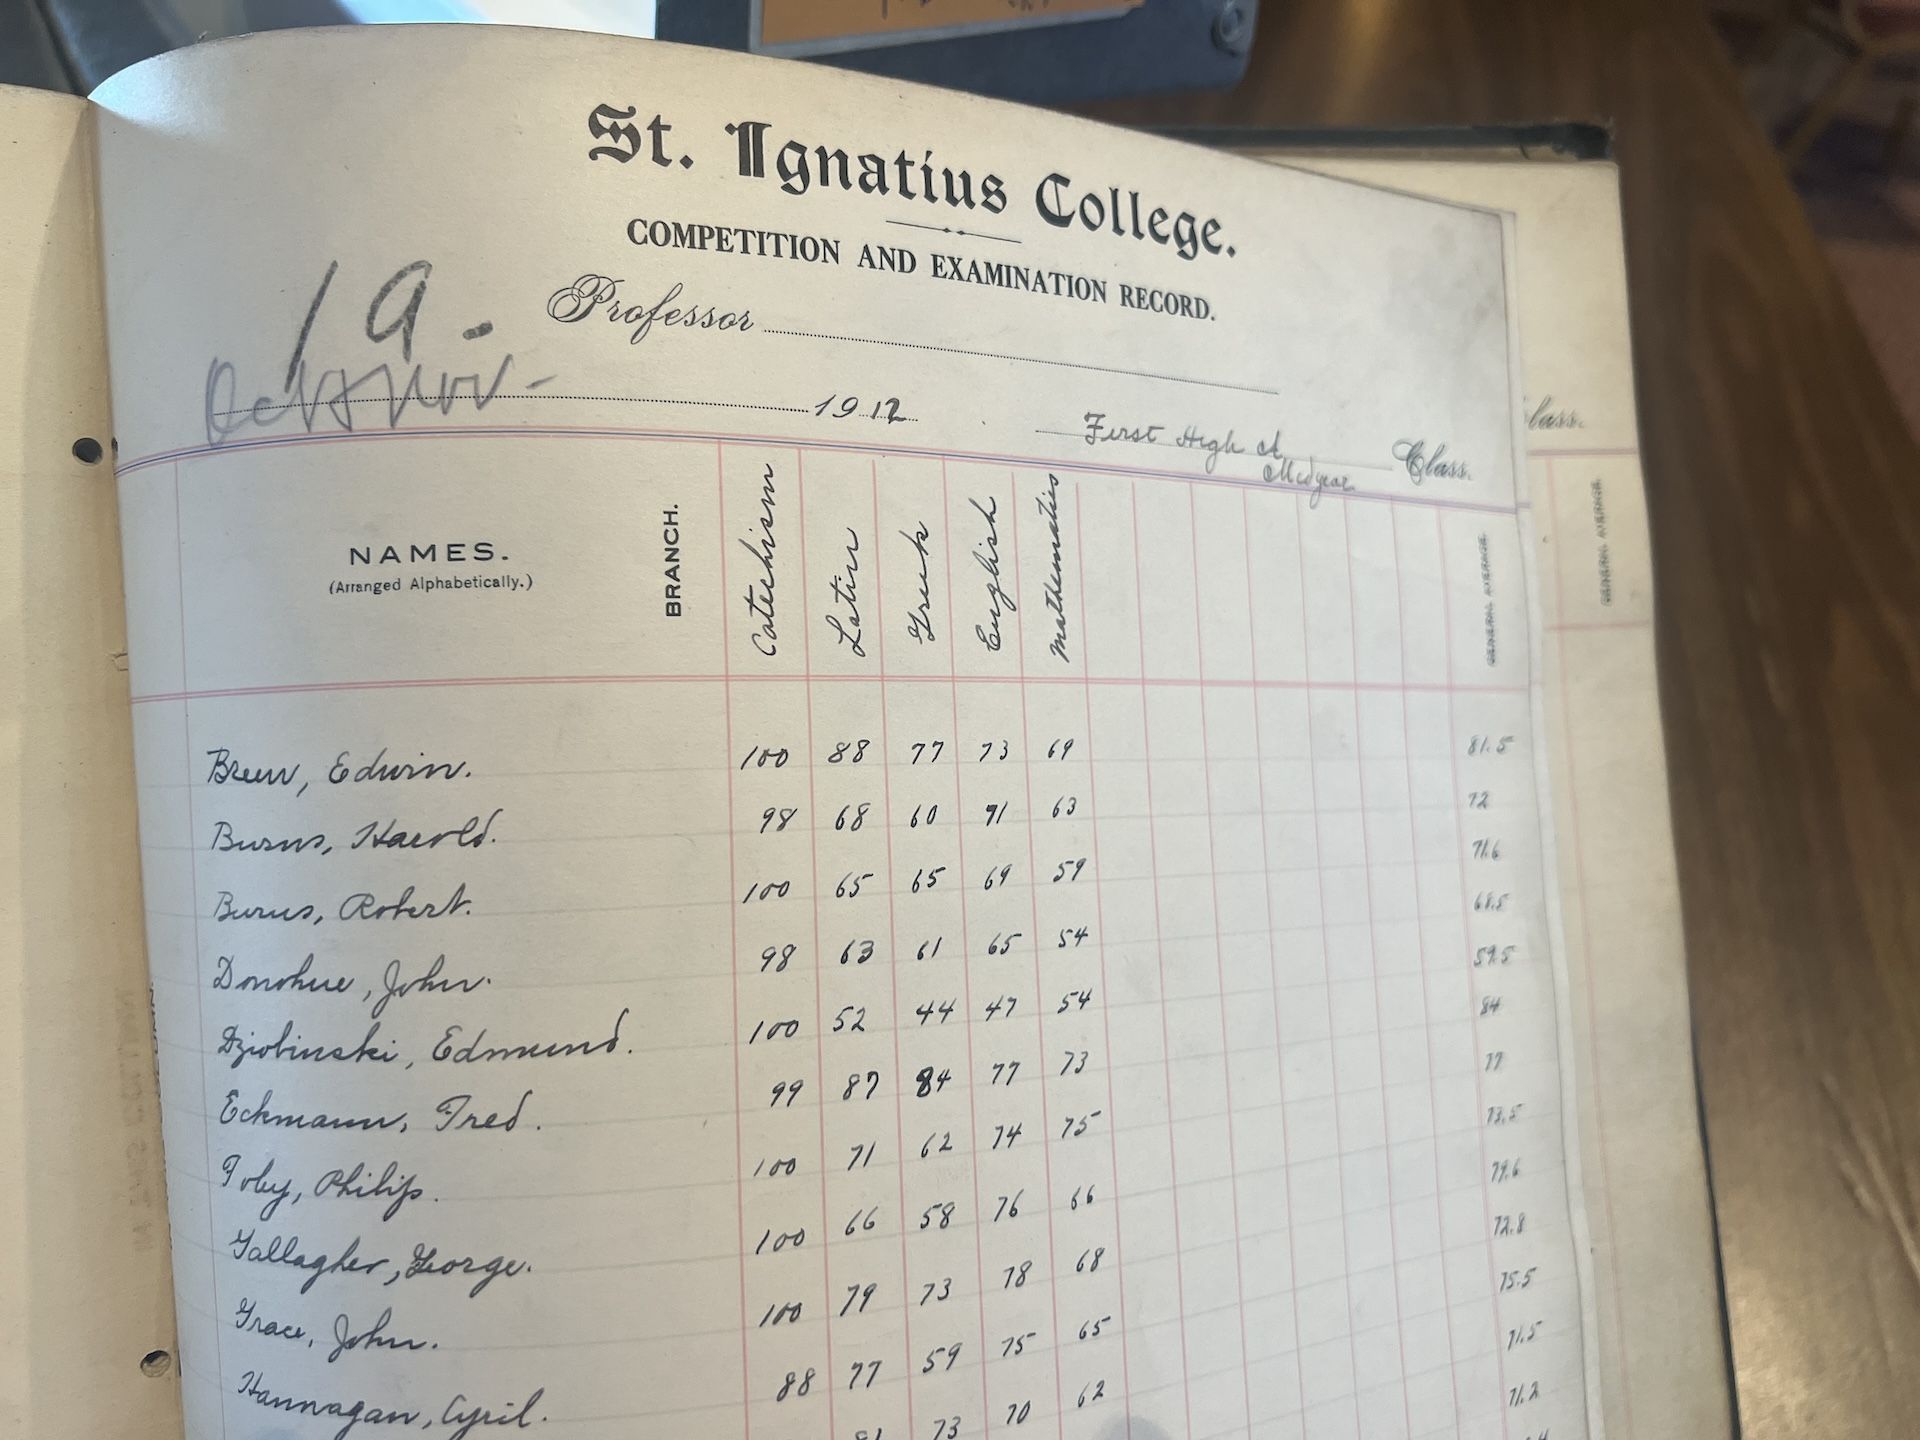 St. Ignatius College.
COMPETITION AND EXAMINATION RECORD.
1 a.
Professor
Oct & Nov - 1912 First High A Class.
Midyear
NAMES. BRANCH. Catechism Latin Greek English Mathematics GENERAL AVERAGE.
(Arranged Alphabetically.)
Brew, Edwin. 100 88 77 73 69 81.5
Burns, Harold. 98 68 60 71 63 72
Burns, Robert. 100 65 65 69 59 71.6
Donohue, John. 98 63 61 65 54 68.5
Dziobinski, Edmund. 100 52 44 47 54 59.5
Eckmann, Fred. 99 87 84 77 73 84
Foley, Philip. 100 71 62 74 75 77
Gallagher, George. 100 66 58 76 66 73.5
Grace, John. 100 79 73 78 68 79.6
Hannagan, Cyril. 88 77 59 75 65 72.8
73 70 62 75.5
71.5
71.2
Class.
GENERAL AVERAGE.